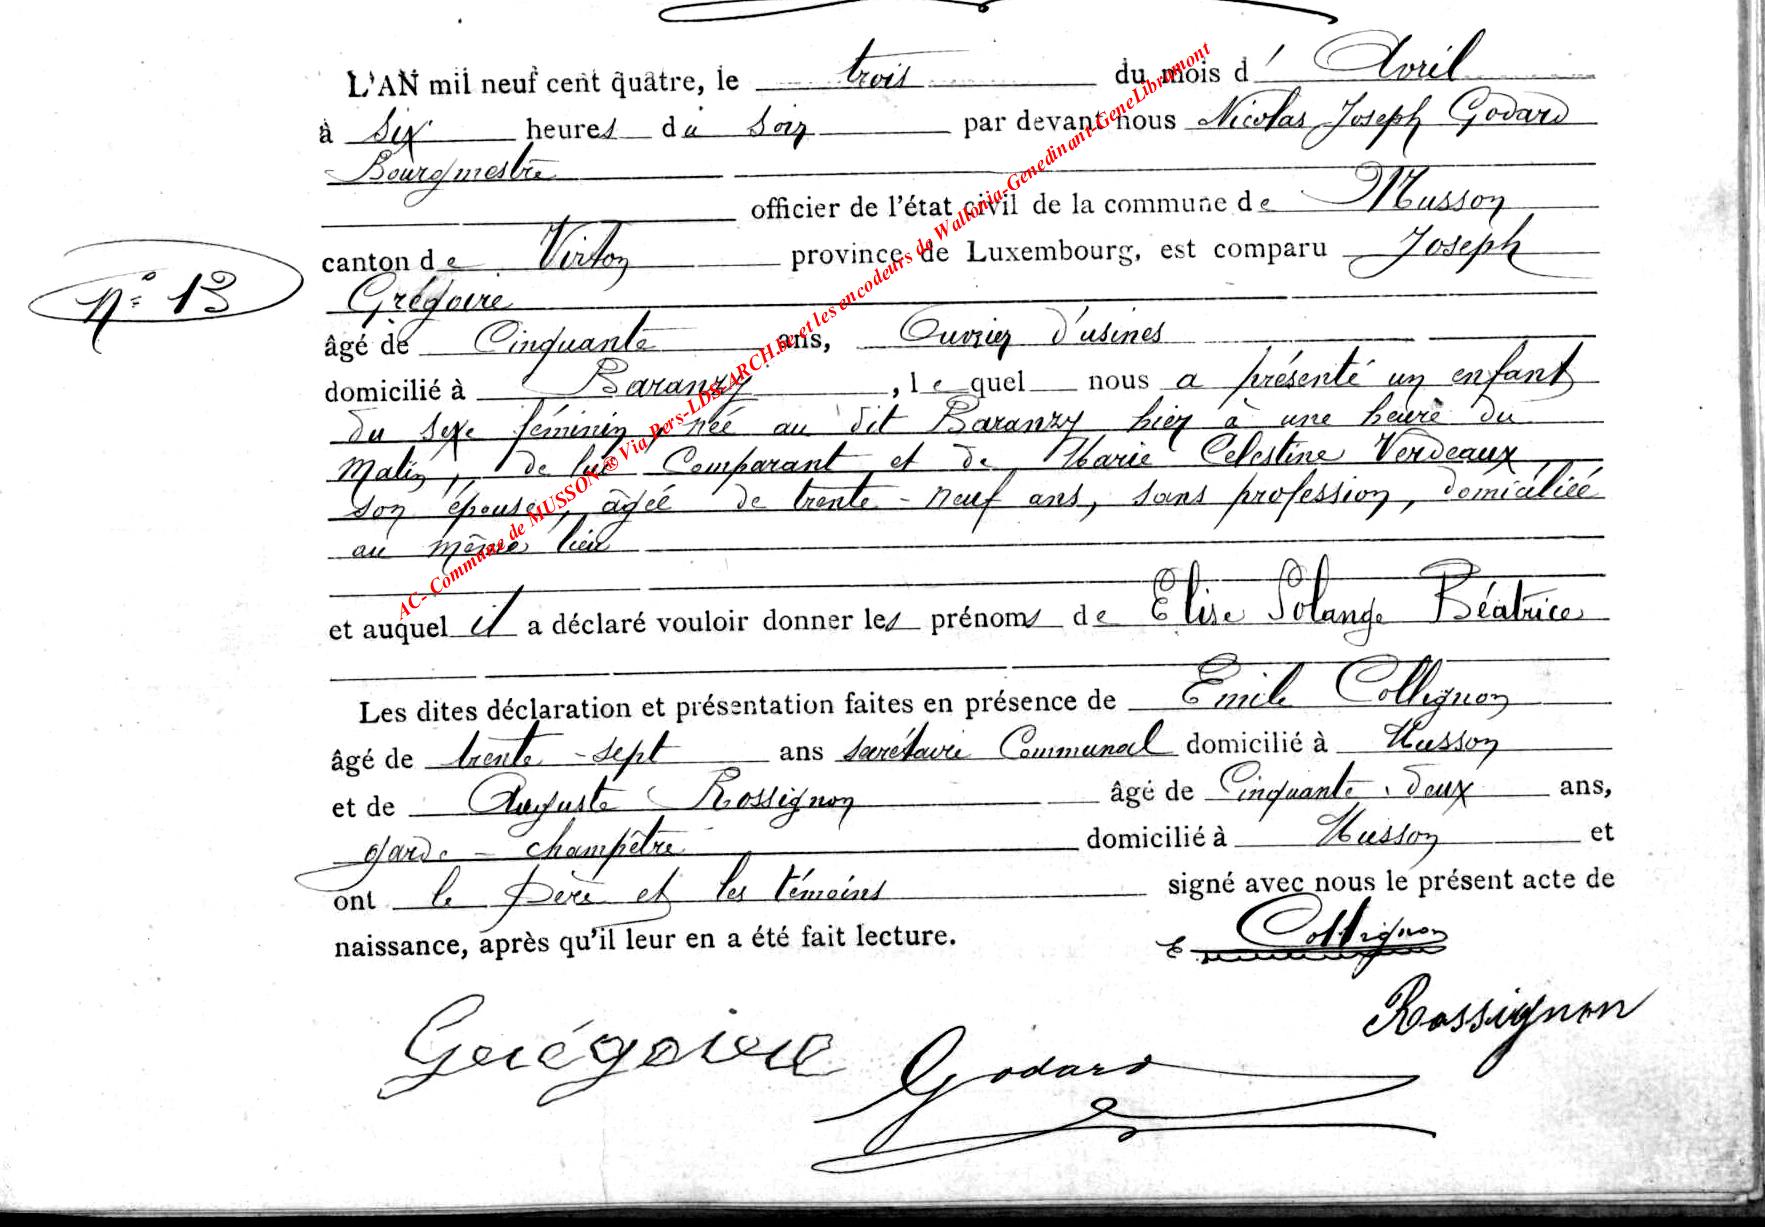 L'AN mil neuf cent quatre, le trois du mois d' Avril
à six heures du soir par devant nous Nicolas Joseph Godard
Bourgmestre
officier de l'état civil de la commune de Musson
canton de Virton province de Luxembourg, est comparu Joseph
N° 13
Grégoire
âgé de Cinquante ans, Ouvrier d'usines
domicilié à Baranzy, lequel nous a présenté un enfant
du sexe féminin, née au dit Baranzy hier à une heure du
matin, de lui Comparant et de Marie Celestine Verdeaux,
son épouse, âgée de trente-neuf ans, sans profession, domiciliée
au même lieu
et auquel il a déclaré vouloir donner les prénoms de Elise Solange Béatrice
Les dites déclaration et présentation faites en présence de Emile Collignon
âgé de trente-sept ans secrétaire Communal domicilié à Musson
et de Auguste Rossignon âgé de Cinquante-deux ans,
garde-champêtre domicilié à Musson et
ont le père et les témoins signé avec nous le présent acte de
naissance, après qu'il leur en a été fait lecture.
E Collignon
Rossignon
Grégoire
Godard
AC- Commune de MUSSON ® Via Pers-LDSEARCH.be et les encodeurs de Wallonia-Genedinant-GeneLibramont